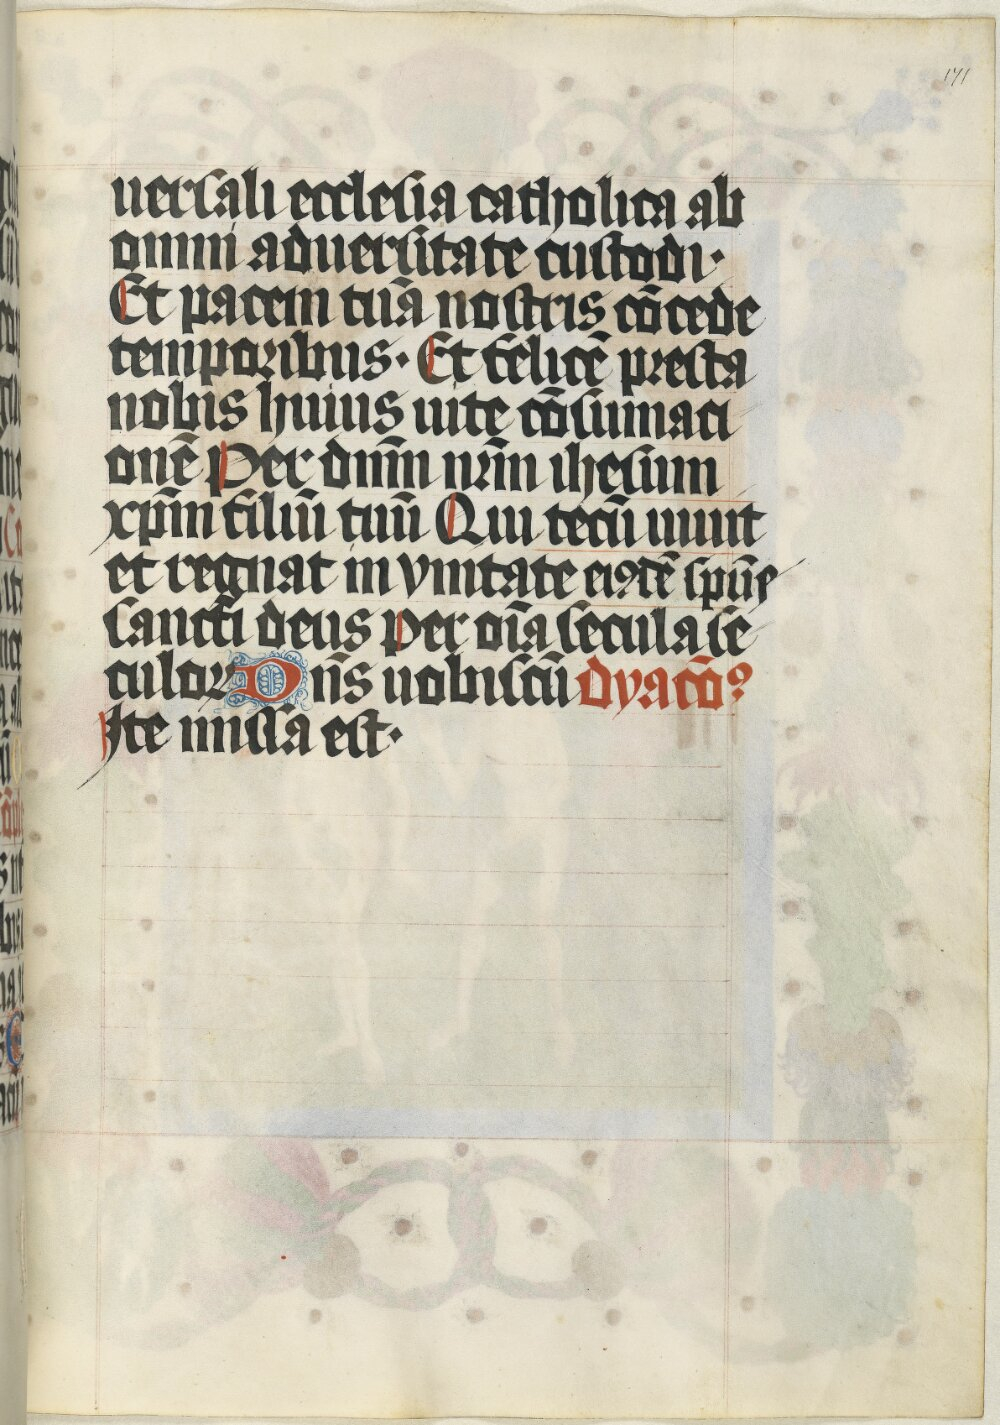 171
uersali ecclesia catholica ab
omni aduersitate custodi·
Et pacem tuā nostris cōcede
temporibus· Et felicē presta
nobis huius uite cōsumaci
onē Per dnm̄ nrm̄ ihesum
xpm̄ filiū tuū Qui tecū uiuit
et regnat in vnitate eiꝰdē spūs
sancti deus per oīa secula se
culoꝝ Dn̄s uobiscū dyacōꝰ
Ite missa est·